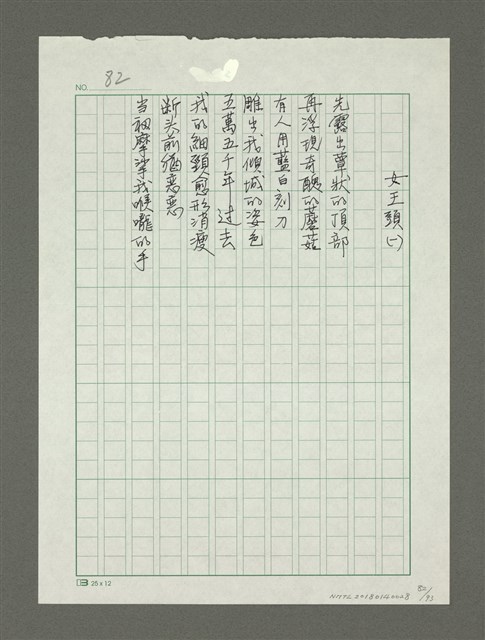 NO. 82
女王頭(一)
先露出蕈狀的頂部
再浮現奇醜的蘑菇
有人用藍白刻刀
雕出我傾城的姿色
五萬五千年 过去
我的細頸愈形消瘦
断头前猶惡惡
当初摩挲我喉嚨的手
25 x 12
NMTL20180140028
82/93